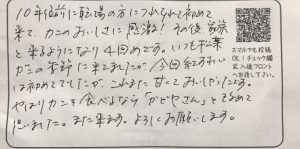 10年位前に職場の方につれられて初めて
来て、カニのおいしさに感激！その後家族
と来るようになり4回めです。いつも松葉
カニの季節に来てましたが、今回
は初めてでしたが、これまた甘くておいしかったです。
やはりカニを食べるなら「かどやさん」と改めて
思いました。また来ます。よろしくお願いします。
スマホでも投稿
OK！チェック欄
記入後フロント
へお渡し下さい。